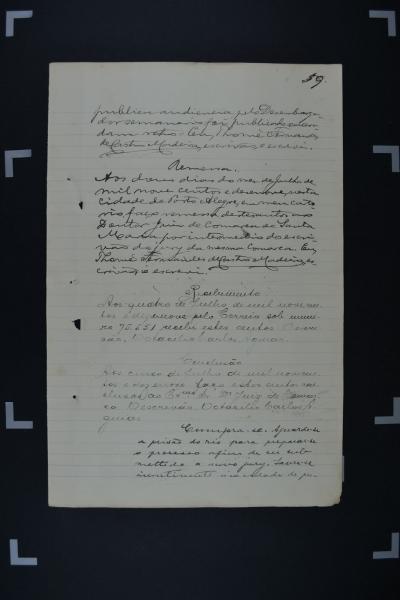 59.
publica audiencia pelo Desembarga-
dor semanario foi publicado o accor-
dam retro. Eu, Thomé Fernandes
de Castro Madeira, escrivão o escrevi.
Remessa.
Aos dois dias do mez de Julho de
mil nove centos e desenove, nesta
cidade de Porto Alegre, em meu carto-
rio faço remessa destes autos ao
Doutor Juiz de Comarca de Santa
Maria, por intermedio do escri-
vão do jury da mesma Comarca. Eu,
Thomé Fernandes de Castro Madeira, es-
crivão o escrevi.
Recebimento
Aos quatro de Julho de mil novecen-
tos e desenove pelo Correio sob nume-
ro 75.651 recebi estes autos. O escri-
vão, Octacilio Carlos
Conclusão
Aos cinco de Julho de mil novecen-
tos e desenove faço estes autos con-
clusos ao Exmo. Sr. Dr. Juiz de Comar-
ca. O escrivão, Octacilio Carlos
Cumpra-se. Aguarde-se
a prisão do réo para preparar-se
o processo afim de ser sub-
mettido a novo jury. Lavre-se
incontinente